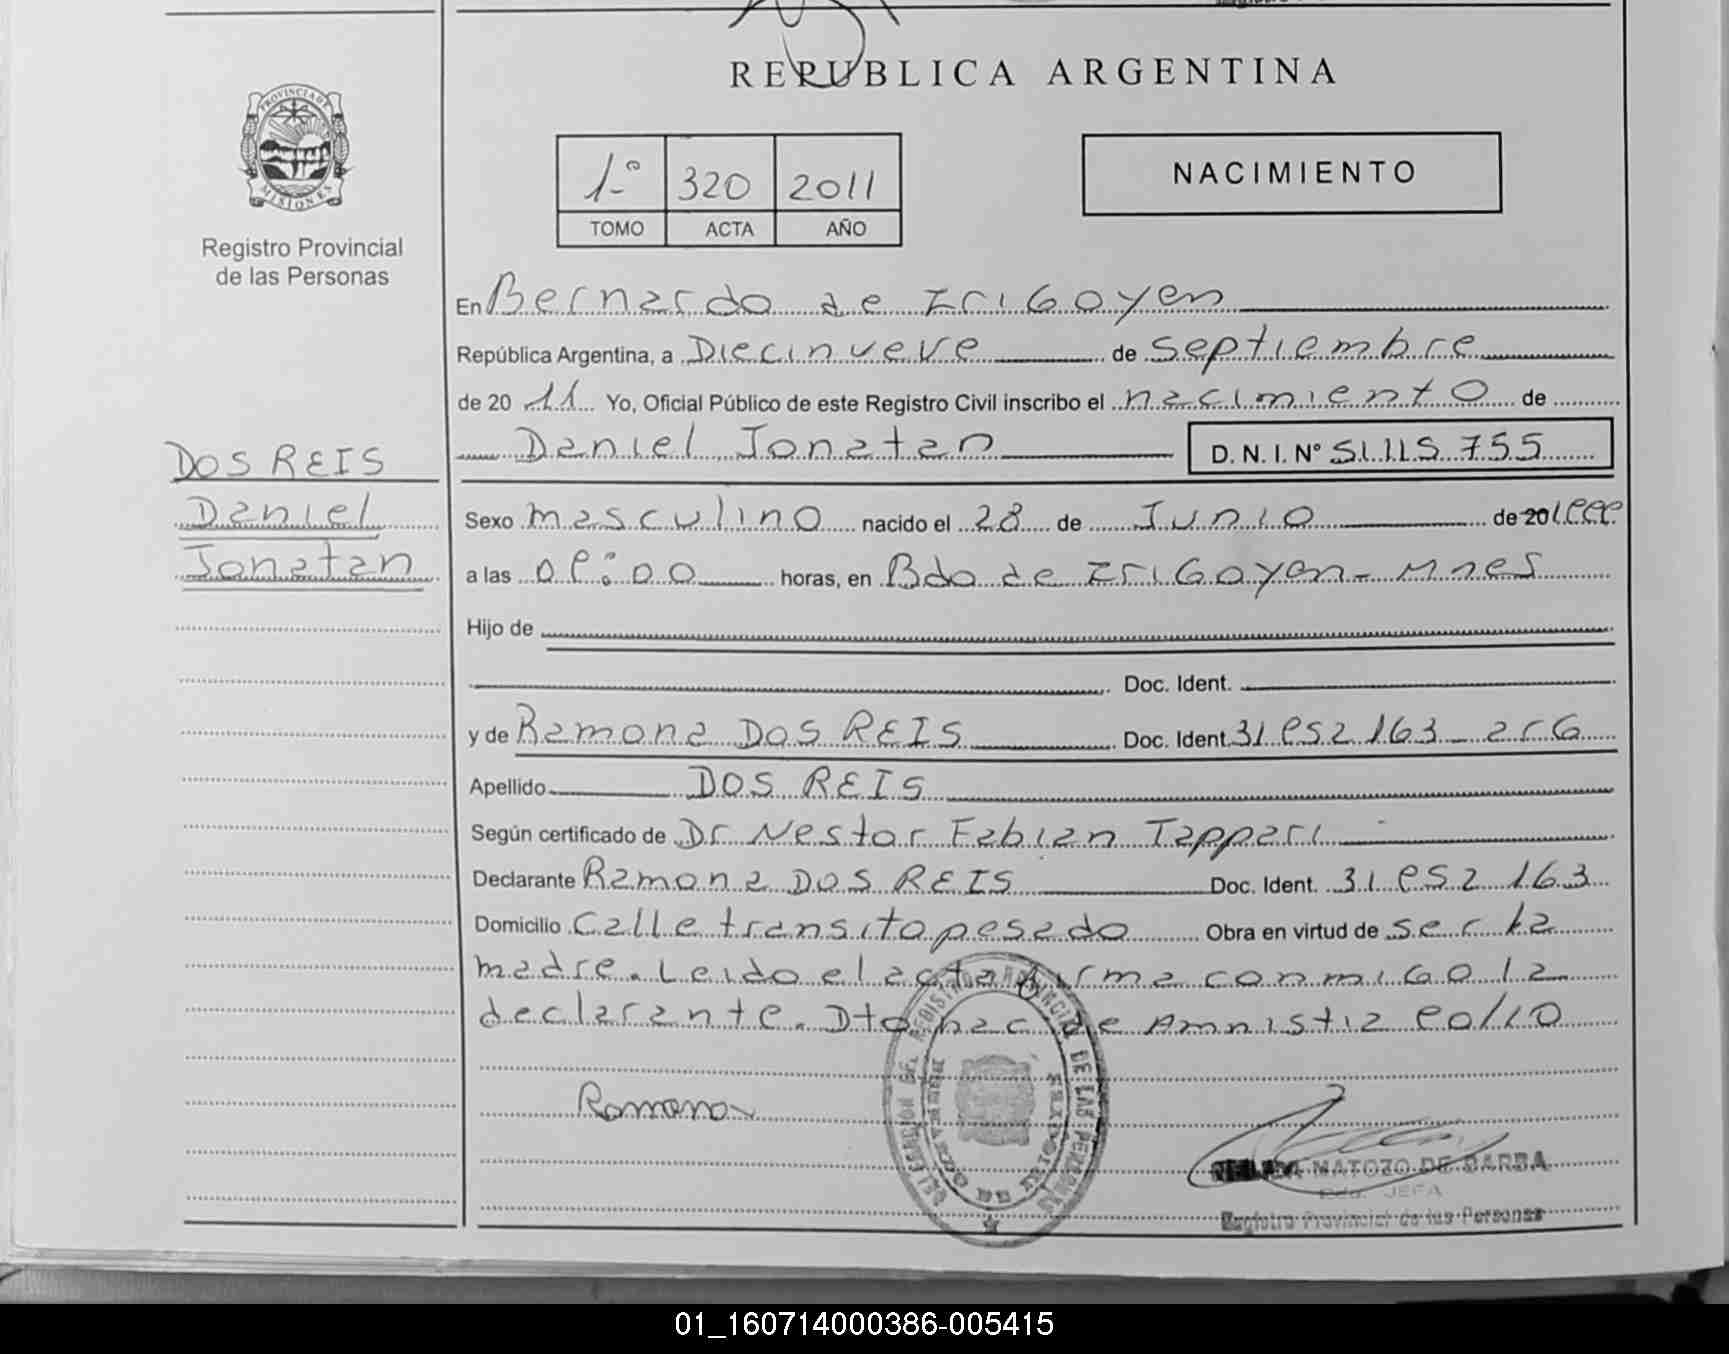 REPUBLICA ARGENTINA
PROVINCIA DE
MISIONES
Registro Provincial
de las Personas
1º 320 2011
TOMO ACTA AÑO
NACIMIENTO
En Bernardo de IriGoyen
República Argentina, a Diecinueve de septiembre
de 20 11 Yo, Oficial Público de este Registro Civil inscribo el nacimiento de
Daniel Jonatan D. N. I. Nº 51.115.755
DOS REIS
Daniel
Jonatan
Sexo masculino nacido el 28 de Junio de 20
a las horas, en Bdo de IriGoyen - Mnes
Hijo de
Doc. Ident.
y de Ramona DOS REIS Doc. Ident. 31.952.163 - arG
Apellido DOS REIS
Según certificado de Dr. Nestor Fabian Tappari
Declarante Ramona DOS REIS Doc. Ident. 31.952.163
Domicilio Calle transito pesado Obra en virtud de ser la
madre. Leido el acta firma conmiGo la
declarante. Dto nac de Amnistia 90/10
Ramona
DELEGACION DEL REGISTRO PROVINCIAL DE LAS PERSONAS
BERNARDO DE IRIGOYEN
MATOZO DE BARBA
JEFA
Registro Provincial de las Personas
01_160714000386-005415